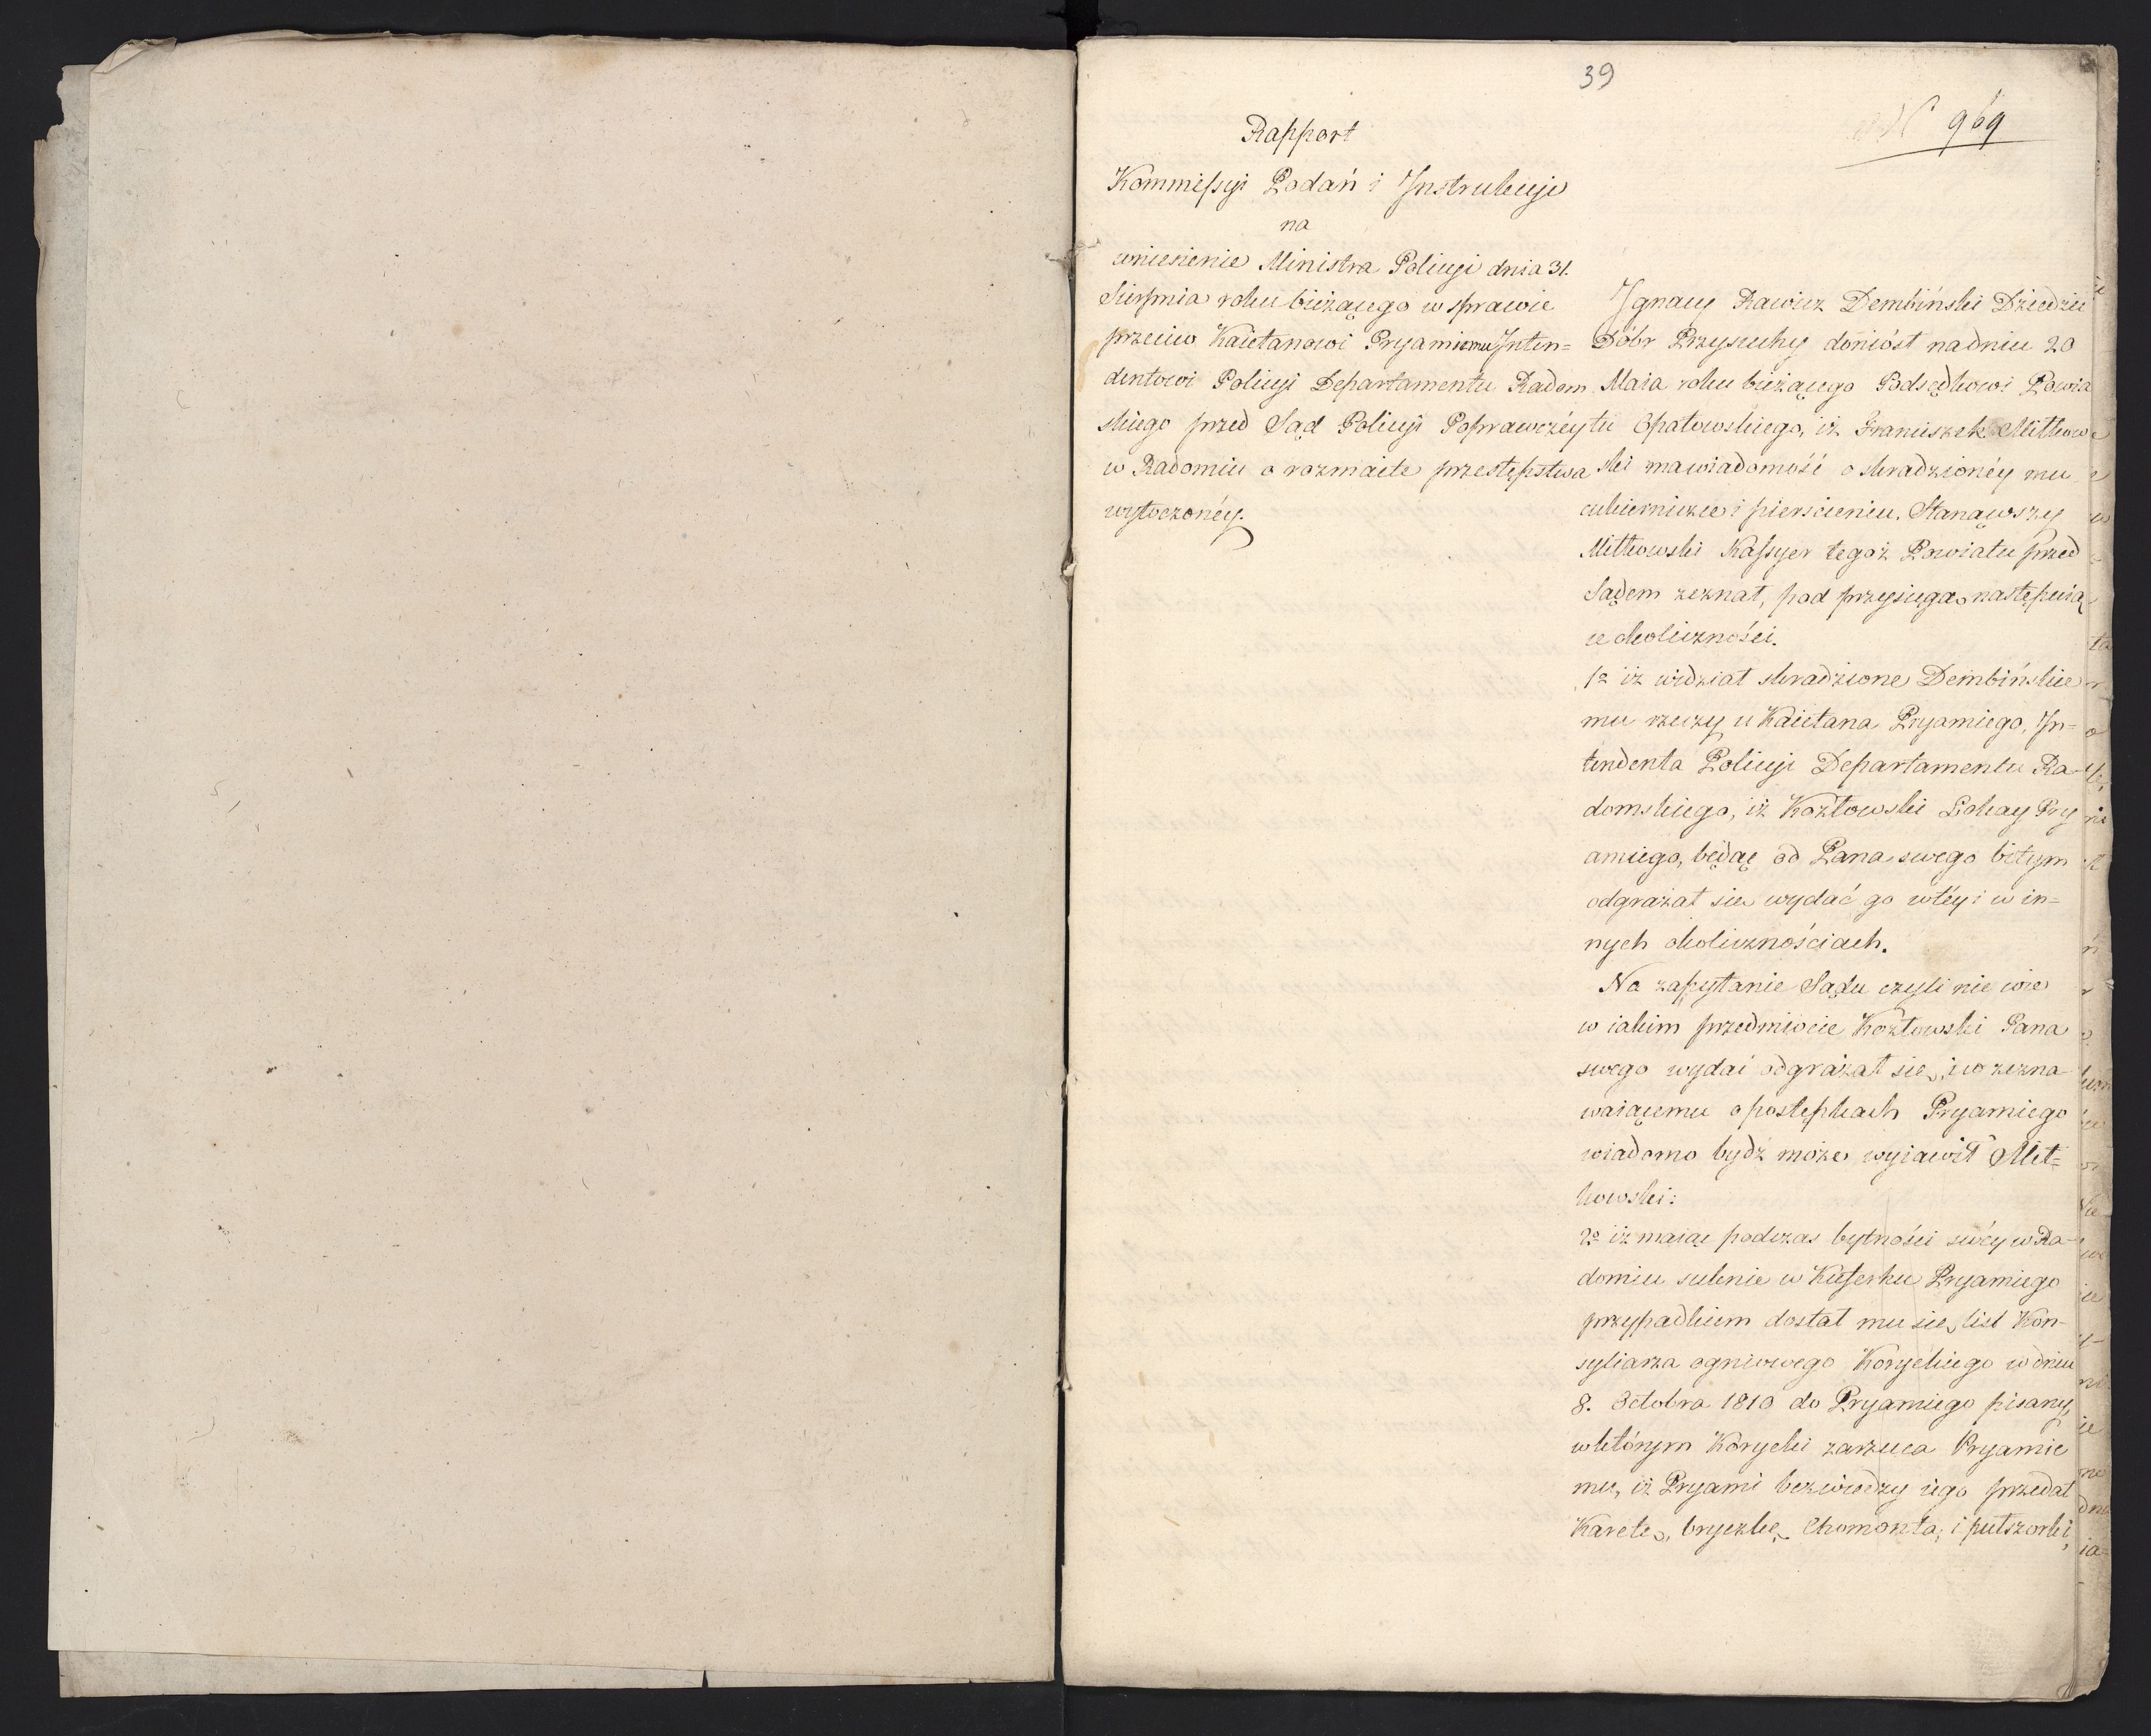 39
N 969
Rapport
Kommissyi Podań i Instrukcyi
na
wniesienie Ministra Policyi dnia 31.
Sierpnia roku bieżącego w sprawie
przeciw Kaietanowi Pryamiemu Inten=
dentowi Policyi Departamentu Radom
skiego przed Sąd Policyi Poprawczéy
w Radomiu o rozmaite przestępstwa
wytoczonéy.
Ignacy Rawicz Dembiński Dziedzic
Dóbr Przysuchy doniósł na dniu 20
Maia roku bieżącego Podsędkowi Powia
tu Opatowskiego, iż Franciszek Mitkow
ski ma wiadomość o skradzionéy mu
cukierniczce i pierscieniu. Stanąwszy
Mitkowski Kassyer tegoż Powiatu przed
Sądem zeznał, pod przysięgą następuią
ce okoliczności.
1º iż widział skradzione Dembińskie
mu rzeczy u Kaietana Pryamiego, In=
tendenta Policyi Departamentu Ra
domskiego, iż Kozłowski Lokay Pry
amiego, będąc od Pana swego bitym
odgrażał się wydać go w téy i w in=
nych okolicznościach.
Na zapytanie Sądu czyli nie wie
w iakim przedmiocie Kozłowski Pana
swego wydać odgrażał się, i co zezna
waiącemu o postępkach Pryamiego
wiadomo bydź może wyiawił Mit=
kowski:
2º iż maiąc podczas bytności swéy w Ra-
domiu suknie w Kuferku Pryamiego
przypadkiem dostał mu się list Kon-
syliarza ogniowego Koryckiego w dniu
8. Octobra 1810 do Pryamiego pisany,
w którym Korycki zarzuca Pryamie
mu, iż Pryami bez wiedzy iego przedał
Karetę, bryczkę, Chomonta, i putszorki,